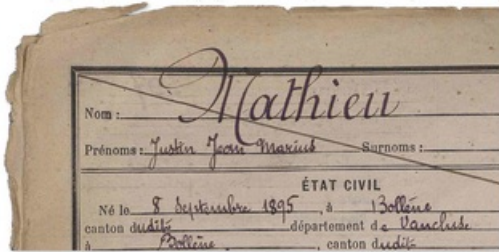 Nom : Mathieu
Prénoms : Justin Jean Marius Surnoms :
ÉTAT CIVIL
Né le 8 Septembre 1895, à Bollène
canton dudit département de Vaucluse
à Bollène, canton dudit